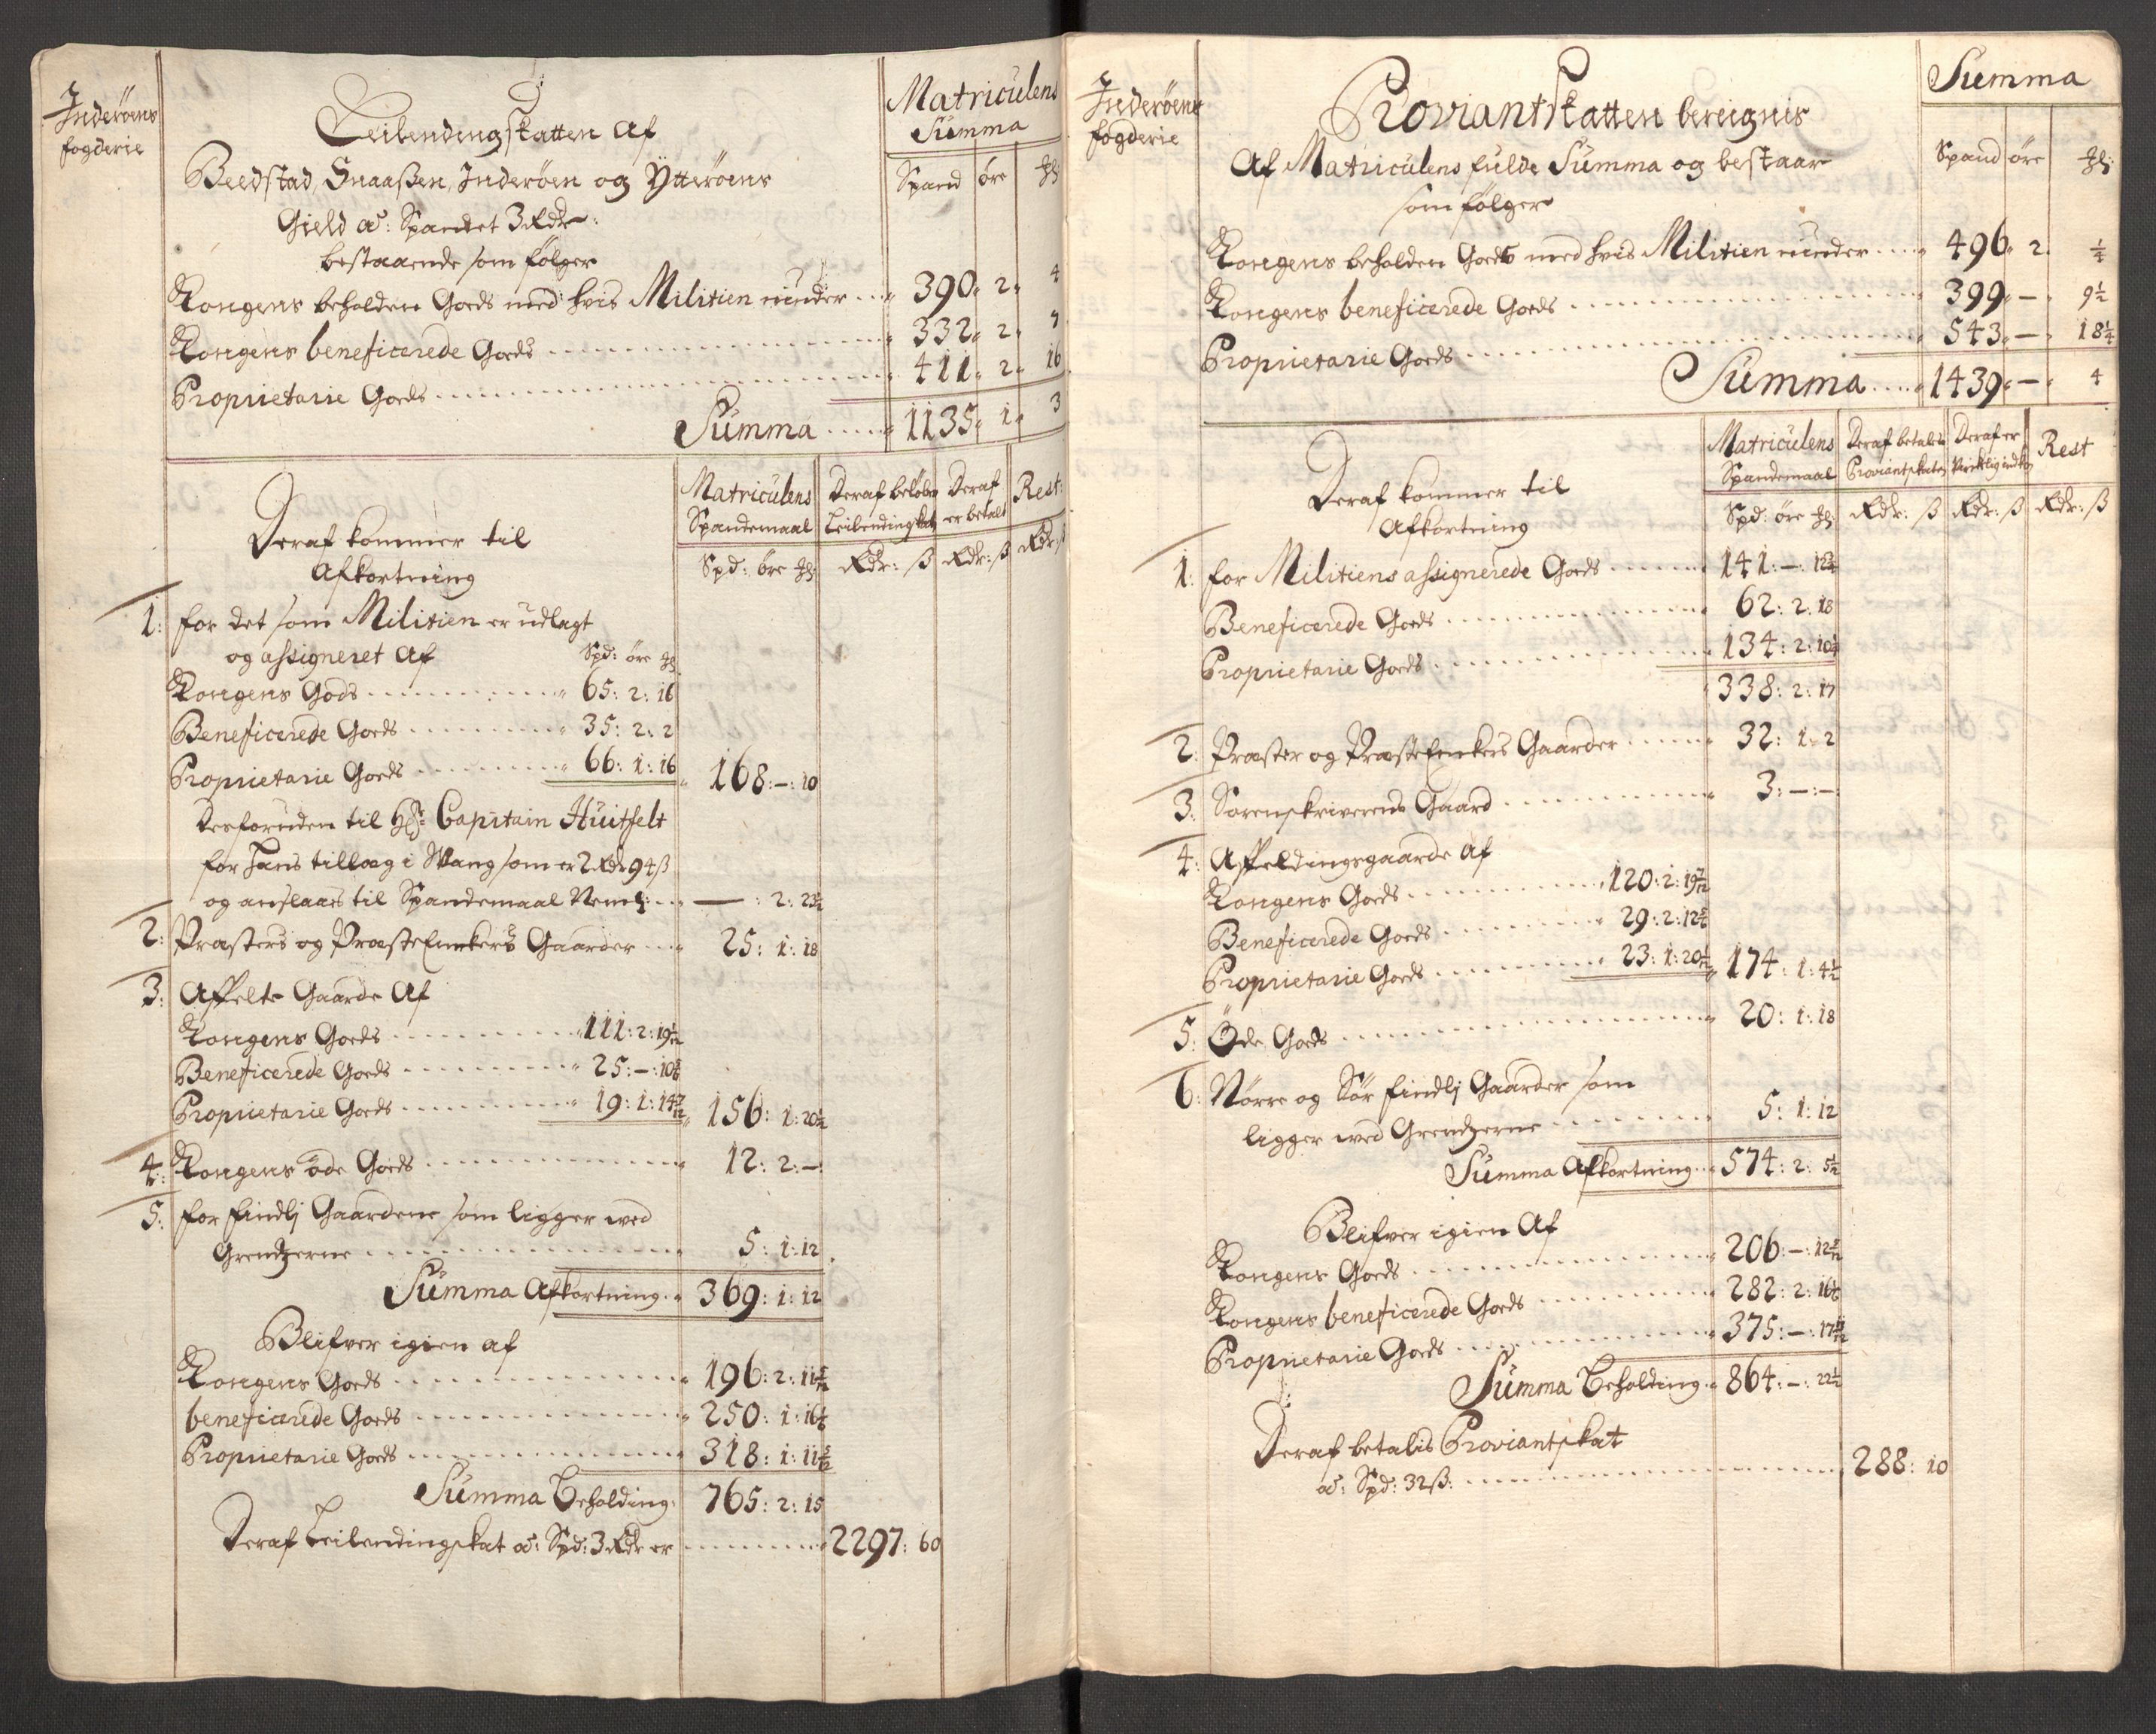 Inderöens
fogderie
Leilendingskatten af
Beedstad, Snaaßen, Inderöen og Ytteröens
Gield a: Spandet 3 Rdr:
bestaaende som fölger
Matriculens
Summa
Spand öre
Kongens beholden Goeds med hvis Militien under 390 2 4
Kongens beneficerede Goeds 332 2 7
Proprietarie Goeds 411 2 16
Summa 1135 1 3
Deraf kommer til
Afkortning
Matriculens Spandemaal
Deraf belöber Leilendingskat
Deraf er betalt
Rest:
Spd: öre Rdr: ß Rdr: ß Rdr: ß
1: for det som Militien er udlagt
og assigneret af Spd: öre
Kongens Gods 65: 2: 16
Beneficerede Goeds 35: 2: 2
Proprietarie Goeds 66: 1: 16 168: –: 10
Desforuden til Capitain Huitfelt
for hans tillæg i Wang som er 2 Rdr 94 ß
og anslaaes til Spandemaal Neml: — : 2: 23½
2: Præsters og Præste Enckers Gaarder 25: 1: 18
3: Affelte Gaarde Af
Kongens Goeds 111: 2: 19
Beneficerede Goeds 25: –: 10
Proprietarie Goeds 19: 1: 14 7/12 156: 1: 20½
4: Kongens öde Goeds 12: 2: –
5: for findlj Gaardene som ligger ved
Grendzerne 5: 1: 12
Summa Afkortning 369: 1: 12
Blifver igien af
Kongens Goeds 196: 2: 11 5/12
beneficerede Goeds 250: 1: 16 1/6
Proprietarie Goeds 318: 1: 11 5/12
Summa Beholding 765: 2: 15
Deraf Leilendingskat a: Spd: 3 Rdr er 2297: 60
Inderöens
fogderie
Proviant Skatten bereignis
Af Matriculens fulde Summa og bestaar
som fölger
Summa
Spand öre
Kongens beholden Goeds med hvis Militien under 496 2 ¼
Kongens beneficerede Goeds 399 – 9½
Proprietarie Goeds 543 – 18¼
Summa 1439 – 4
Deraf kommer til
Afkortning
Matriculens Spandemaal
Deraf betalis Proviantskaten
Deraf er
Rest
Spd: öre Rdr: ß Rdr: ß Rdr: ß
1: for Militiens assignerede Goeds 141: –: 12¾
Beneficerede Goeds 62: 2: 18
Proprietarie Goeds 134: 2: 10¼
338: 2: 17
2: Præster og Præste Enckers Gaarder 32: 1: 2
3: Sorenskriverens Gaard 3: –: –
4: Affeldingsgaarde af
Kongens Goeds 120: 2: 19 7/12
Beneficerede Goeds 29: 2: 12
Proprietarie Goeds 23: 1: 20 174: 1: 4½
5: Öde Goeds 20: 1: 18
6: Nörre og Sör findlj Gaarder som
ligger ved Grendzerne 5: 1: 12
Summa Afkortning 574: 2: 5½
Blifver igien Af
Kongens Goeds 206: –: 12
Kongens beneficerede Goeds 282: 2: 16
Proprietarie Goeds 375: –: 17
Summa Beholding 864: –: 22½
Deraf betalis Proviantskat
a: Spd: 32 ß: 288: 10